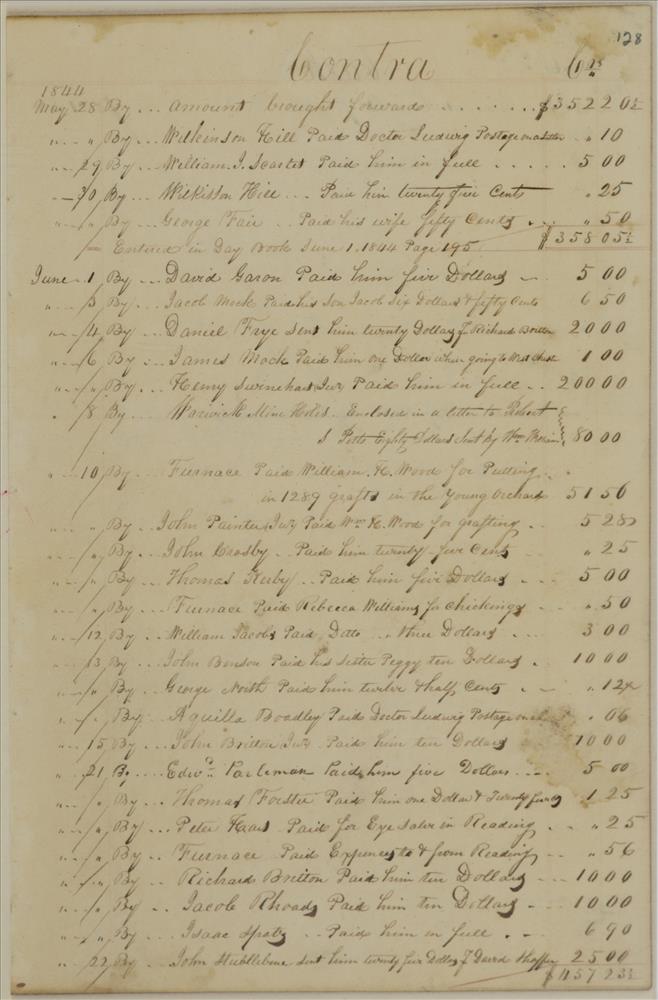 128
Contra Crs
1844
May 28 By ... Amount brought forward ....... $3522 0½
" .. " By ... Wilkinson Hill Paid Doctor Ludwig Postage on a letter .. " 10
" .. 29 By ... William J. Scarlet Paid him in full ..... 5 00
" — 30 By ... Wilkisson Hill ... Paid him twenty five Cents " 25
" .. " By ... George Fair .. Paid his wife fifty Cents ... " 50
Entered in Day Book June 1. 1844 Page 195 $3580 5½
June .. 1 By ... David Garon Paid him five Dollars — 5 00
" .. 3 By ... Jacob Mock Paid his Son Jacob Six Dollars & fifty Cents 6 50
" .. 4 By ... Daniel Frye Sent him twenty Dollars f Richard Britton 20 00
" .. 6 By ... James Mock Paid him one Dollar when going to West 1 00
" .. " By ... Henry Swinehart Jur Paid him in full .. 200 00
" 8 By Warwick Mine Holes .. Enclosed in a letter to Robert
S Potts Eighty Dollars Sent by Wm 80 00
" 10 By ... Furnace Paid William. H. Wood for Putting ..
in 1289 grafts in the Young Orchard 51 56
" .. " By .. John Painter Jur Paid Wm H. Wood for grafting .. 5 28
" .. " By ... John Crosby .. Paid him twenty-five Cents .. " 25
" .. " By ... Thomas Kerby .. Paid him five Dollars ... 5 00
" .. " By ... Furnace Paid Rebecca Williams for Chickings - " 50
" .. 12 By .. William Jacobs Paid Ditto .. three Dollars ... 3 00
" .. 13 By ... John Benson Paid his Sister Peggy ten Dollars . 10 00
" .. " By .. George North Paid him twelve & half Cents . - " 12½
" . " By .. Aquilla Boadley Paid Doctor Ludwig Postage on " 06
" .. 15 By .. John Britton Jur Paid him ten Dollars 10 00
" . 21 By .... Edwd. Parleman Paid him five Dollars .... 5 00
" .. " By .. Thomas Forster Paid him one Dollar & Twenty five Cts 1 25
" .. " By ... Peter Haas Paid for Eye Salve in Reading .. " 25
" .. " By .. Furnace Paid Expences to & from Reading .. " 56
" .. " By .. Richard Britton Paid him ten Dollars ... 10 00
" .. " By .. Jacob Rhoads Paid him ten Dollars ... 10 00
" .. " By ... Isaac Spatz .. Paid him in full . - 6 90
" .. 22 By ... John Stubblebine Sent him twenty five Dollars f David Shaffer 25 00
$4157 23½